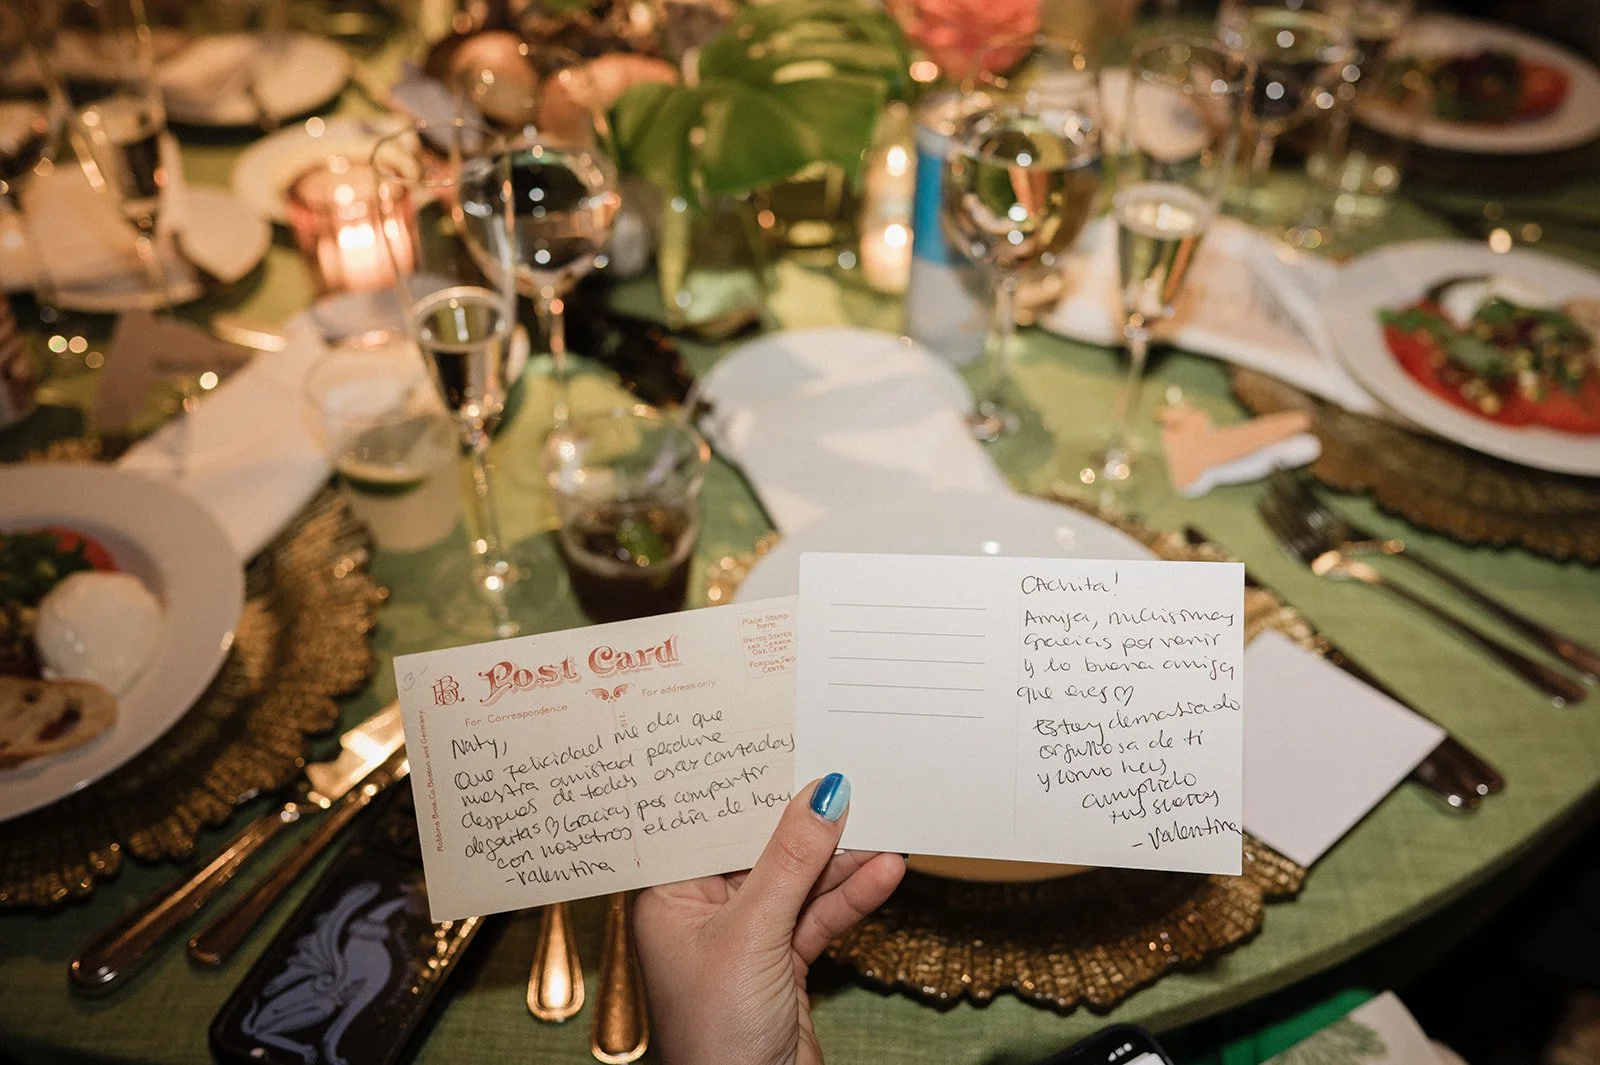 Post Card
Place Stamp
here.
United States
and Canada
One Cent.
Foreign, Two
Cents.
For Correspondence
For address only.
Robbins Bros. Co. Boston and Germany.
Naty,
Que felicidad me da que
nuestra amistad perdure
después de todos esas contadas
degaitas♡ Gracias por compartir
con nosotros el día de hoy
-Valentina
CAchita!
Amiga, muchisimas
Gracias por venir
y lo buena amiga
que eres♡
Estoy demasiado
orgullosa de ti
y como has
cumplido
tus sueños
-Valentina